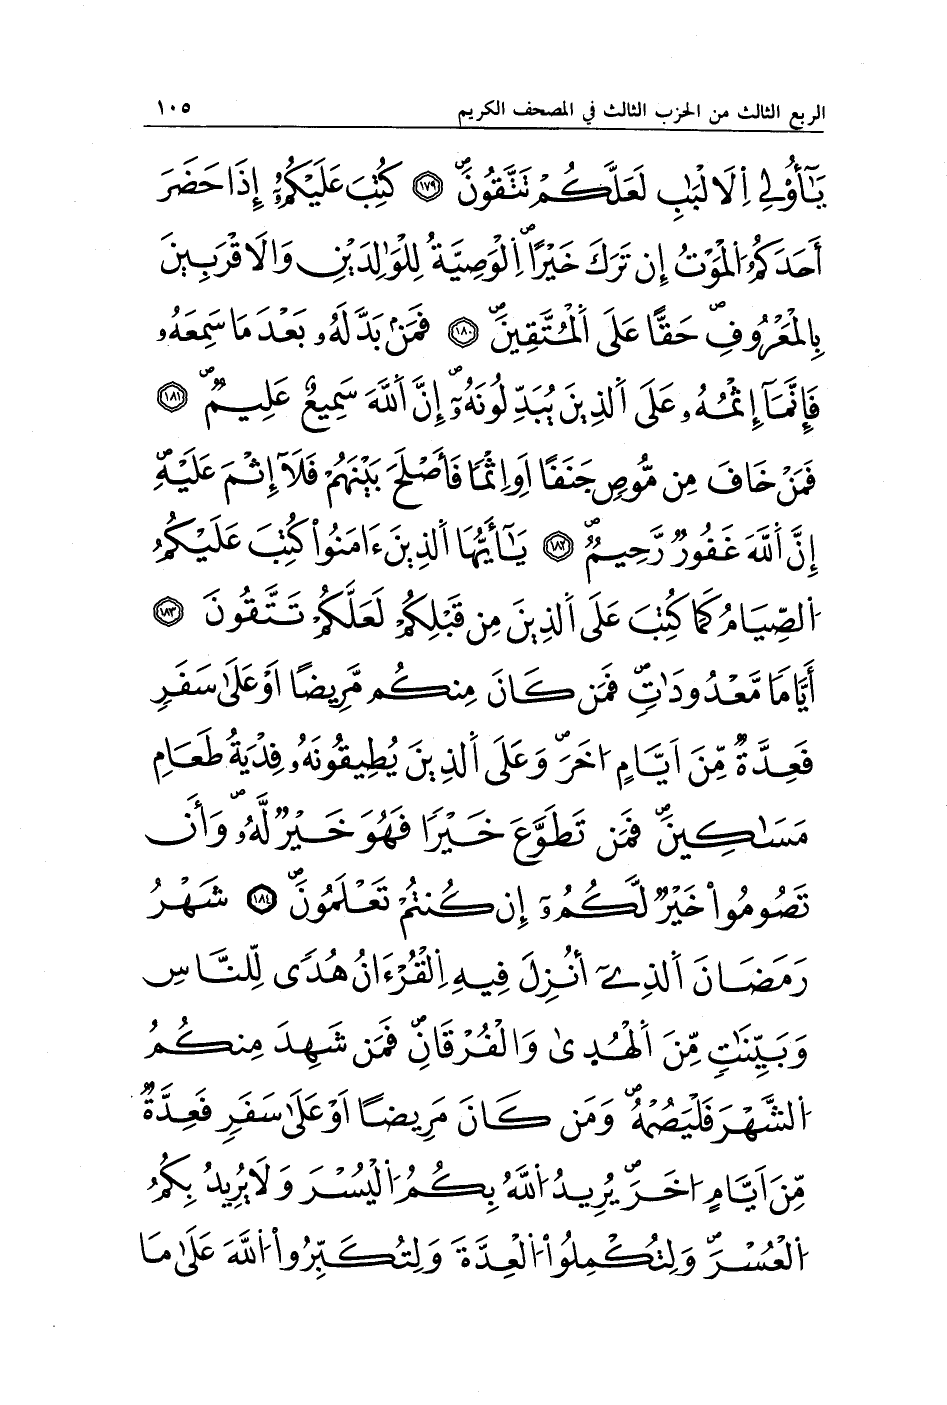 الربع الثالث من الحزب الثالث في المصحف الكريم ١٠٥
يَٰٓأُوْلِے اِ۬لَالْبَٰبِ لَعَلَّكُمْ تَتَّقُونَۖ ١٧٩ كُتِبَ عَلَيْكُمُۥٓ إِذَا حَضَرَ
أَحَدَكُمُ اُ۬لْمَوْتُ إِن تَرَكَ خَيْراًۖ اِ۬لْوَصِيَّةُ لِلْوَٰلِدَيْنِ وَالَاقْرَبِينَ
بِالْمَعْرُوفِۖ حَقّاً عَلَى اَ۬لْمُتَّقِينَۖ ١٨٠ فَمَنۢ بَدَّلَهُۥ بَعْدَ مَا سَمِعَهُۥ
فَإِنَّمَآ إِثْمُهُۥ عَلَى اَ۬لذِينَ يُبَدِّلُونَهُۥٓۖ إِنَّ اَ۬للَّهَ سَمِيعٌ عَلِيمٞۖ ١٨١
فَمَنْ خَافَ مِن مُّوصٖ جَنَفاً اَوِ اِثْماً فَأَصْلَحَ بَيْنَهُمْ فَلَآ إِثْمَ عَلَيْهِۖ
إِنَّ اَ۬للَّهَ غَفُورٞ رَّحِيمٞۖ ١٨٢ يَٰٓأَيُّهَا اَ۬لذِينَ ءَامَنُواْ كُتِبَ عَلَيْكُمُ
اُ۬لصِّيَامُ كَمَا كُتِبَ عَلَى اَ۬لذِينَ مِن قَبْلِكُمْ لَعَلَّكُمْ تَتَّقُونَ ١٨٣
أَيَّاماٗ مَّعْدُودَٰتٖۖ فَمَن كَانَ مِنكُم مَّرِيضاً اَوْ عَلَىٰ سَفَرٖ
فَعِدَّةٞ مِّنَ اَيَّامٍ اُخَرَۖ وَعَلَى اَ۬لذِينَ يُطِيقُونَهُۥ فِدْيَةُ طَعَامِ
مَسَٰكِينَۖ فَمَن تَطَوَّعَ خَيْراٗ فَهُوَ خَيْرٞ لَّهُۥۖ وَأَن
تَصُومُواْ خَيْرٞ لَّكُمُۥٓ إِن كُنتُمْ تَعْلَمُونَۖ ١٨٤ شَهْرُ
رَمَضَانَ اَ۬لذِےٓ أُنزِلَ فِيهِ اِ۬لْقُرْءَانُ هُدىٗ لِّلنَّاسِ
وَبَيِّنَٰتٖ مِّنَ اَ۬لْهُدِىٰ وَالْفُرْقَانِۖ فَمَن شَهِدَ مِنكُمُ
اُ۬لشَّهْرَ فَلْيَصُمْهُۖ وَمَن كَانَ مَرِيضاً اَوْ عَلَىٰ سَفَرٖ فَعِدَّةٞ
مِّنَ اَيَّامٍ اُخَرَۖ يُرِيدُ اُ۬للَّهُ بِكُمُ اُ۬لْيُسْرَ وَلَا يُرِيدُ بِكُمُ
اُ۬لْعُسْرَۖ وَلِتُكْمِلُواْ اُ۬لْعِدَّةَ وَلِتُكَبِّرُواْ اُ۬للَّهَ عَلَىٰ مَا